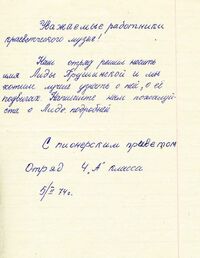 Уважаемые работники
краеведческого музея!
Наш отряд решил носить
имя Лиды Ярушинской и мы
хотим лучше узнать о ней, о её
подвигах. Напишите нам пожалуй-
ста о Лиде подробней
С пионерским приветом
Отряд 4 "А" класса
5/X 74г.